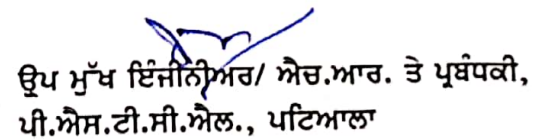 ਉਪ ਮੁੱਖ ਇੰਜੀਨੀਅਰ/ ਐਚ.ਆਰ. ਤੇ ਪ੍ਰਬੰਧਕੀ,
ਪੀ.ਐਸ.ਟੀ.ਸੀ.ਐਲ., ਪਟਿਆਲਾ